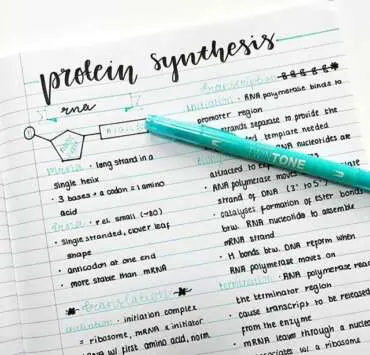 protein synthesis
rna
mRNA · long strand in a
single helix
· 3 bases → a codon = 1 amino
acid
· rel. small (~80)
· single stranded, clover leaf
shape
· anticodon at one end
· more stable than mRNA
translation
initiation · initiation complex
= ribosome, mRNA & initiator
tRNA w/ first amino acid, norm.
transcription
initiation · RNA polymerase binds to
promoter region
strands separate to provide the
template needed
RNA nucleotides are
attracted to
RNA polymerase moves
strand of DNA (3' to 5')
· catalyses formation of ester bonds
btw. RNA nucleotides to assemble
mRNA strand
· H bonds btw. DNA reform when
RNA polymerase moves on
termination · RNA polymerase reac
the terminator region
· cause transcript to be released
from the enzyme
· mRNA leaves through a nucle
w/ a ribosome
TONE